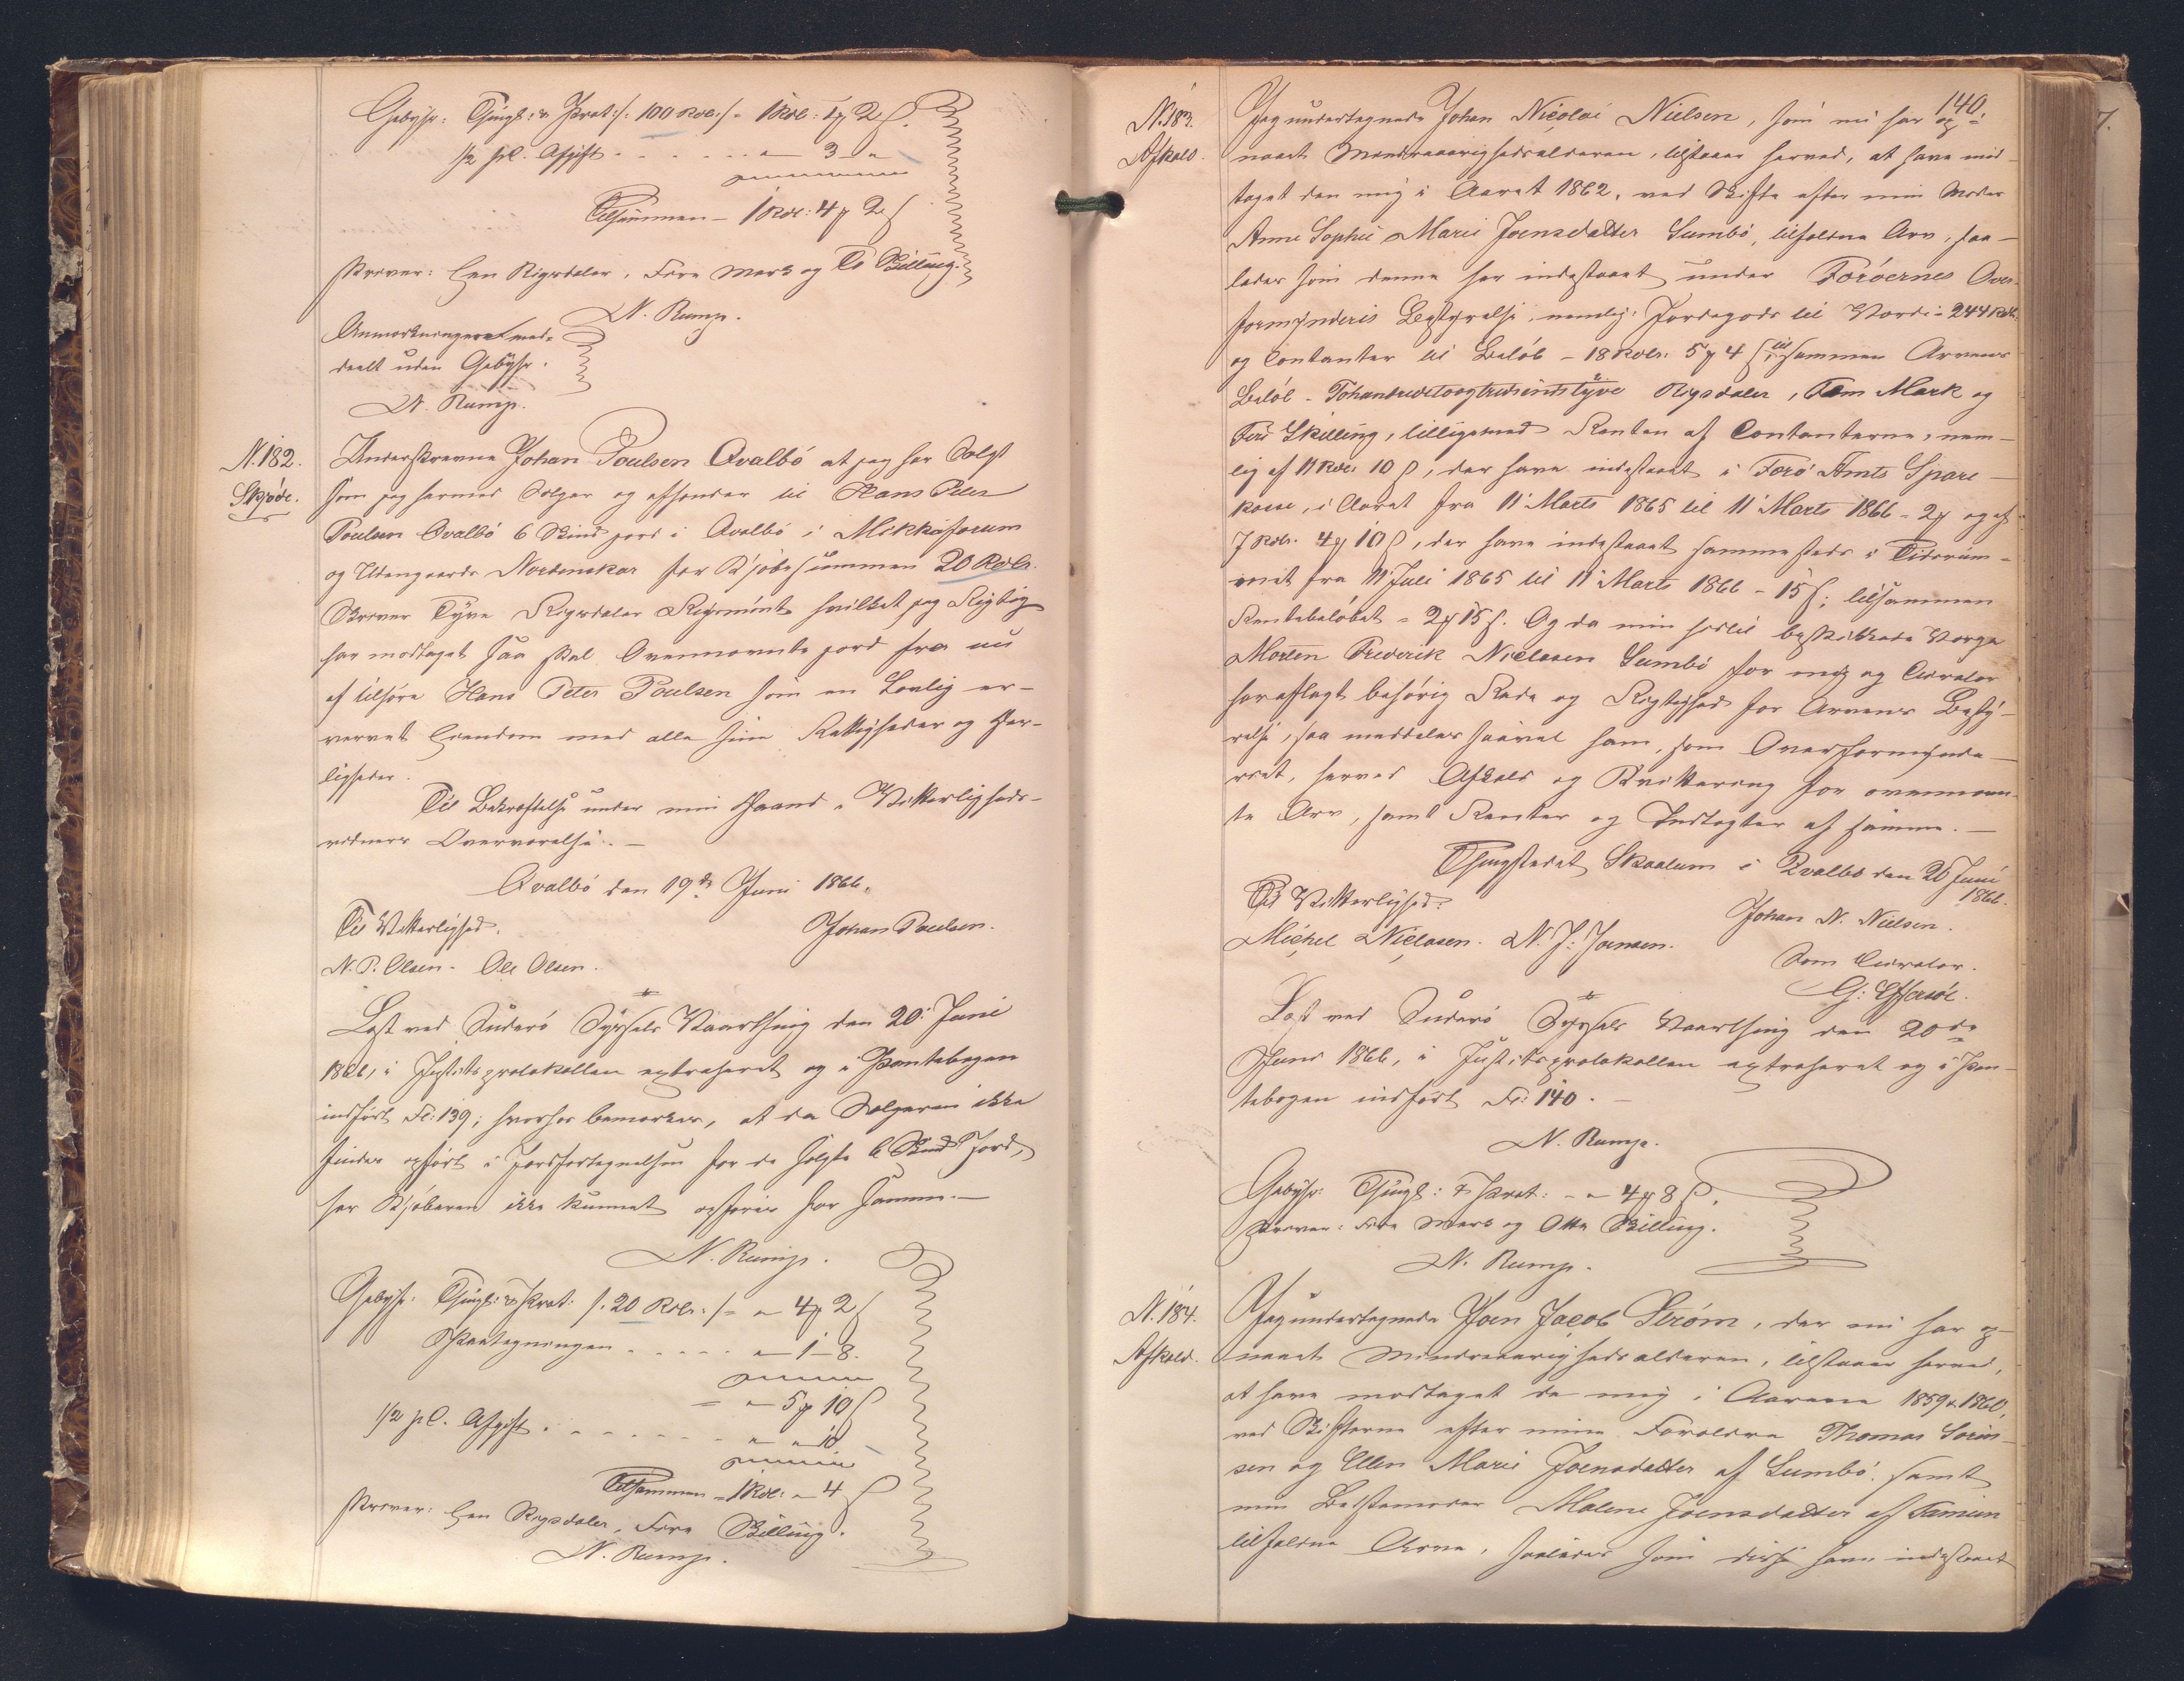 Gebyhr: Thingl: & Prot: /: 100 Rdl: / - 1 Rdl: 1 ℳ 2 ß.
1/2 pC. Afgift - - - - - - " 3 "
Tilsammen - 1 Rdl: 4 ℳ 2 ß
skriver: Een Rigsdaler, Fire Mark og To Skilling.
N. Rump.
Anmærkningen med-
deelt uden Gebyhr.
N. Rump.
N. 182.
Skjøde.
Underskrevne Johan Poulsen Qvalbö at jeg har Solgt
som jeg hermed Sælger og afhænder til Hans Peter
Poulsen Qvalbö 6 Skind jord i Qvalbö i Mikkáforum
og Udengaards Nordenskar for Kjøbesummen 20 Rdlr.
Skriver Tyve Rigsdaler Rigsmønt hvilket jeg Rigtig
har modtaget saa skal Ovennævnte jord fra nu
af tilhøre Hans Peter Poulsen som en Lovlig er-
vervet Eiendom med alle sine Rettigheder og Her-
ligheder.
Til Bekræftelse under min Haand i Vitterligheds-
vidners Overværelse. —
Qvalbö den 19de Juni 1866.
Til Vitterlighed. Johan Poulsen.
N. P. Olsen. Ole Olsen.
Læst ved Suderö Sysels Vaarthing den 20' Juni
1866, i Justitsprotokollen extraheret og i Pantebogen
indført Fl: 139; hvorhos bemærkes, at da Sælgeren ikke
findes opført i Jordfortegnelsen for de solgte 6 Skind Jord,
har Kjøberen ikke kunnet opføres for samme. —
N. Rump.
Gebyhr: Thingl: & Prot: /: 20 Rdlr: / - " 4 ℳ 2 ß
Paategningen - - - - - " 1 - 8.
= " 5 ℳ 10 ß
1/2 pC. Afgift. - - - - - - " " 10
Tilsammen - 1 Rdl: " 4 ß
skriver: Een Rigsdaler, Fire Skilling.
N. Rump.
140.
N. 183.
Afkald.
Jeg undertegnede Johan Nicolai Nielsen, som nu har op-
naaet Mindreaarighedsalderen, tilstaaer herved, at have mod-
taget den mig i Aaret 1862, ved Skifte efter min Moder
Anne Sophie Marie Joensdatter Sumbö, tilfaldne Arv, saa-
ledes som denne har indestaaet under Færöernes Over-
formynderis Bestyrelse, nemlig: Jordegods til Værdi - 244 Rdl.
og Contanter til Beløb - 18 Rdlr. 5 ℳ 4 ß, tilsammen Arvens
Beløb - Tohundredetoogtredsindstyve Rigsdaler, Fem Mark og
Fire Skilling, tilligemed Renten af Contanterne, nem-
lig af 11 Rdl: 10 ß, der have indestaaet i Færö Amts Spare-
kasse, i Aaret fra 11' Marts 1865 til 11' Marts 1866 - 2 ℳ og af
7 Rdl. 4 ℳ 10 ß, der have indestaaet sammesteds i Tidsrum-
met fra 11' Juli 1865 til 11' Marts 1866 - 15 ß; tilsammen
Rentebeløbet - 2 ℳ 15 ß. Og da min hidtil beskikkede Værge
Morten Frederik Nielsen Sumbö for mig og Curator
har aflagt behørig Rede og Rigtighed for Arvens Besty-
relse, saa meddeles saavel ham, som Overformynde-
riet, herved Afkald og Kvittering for ovennævn-
te Arv, samt Renter og Indtægter af samme. —
Thingstedet Skaalum i Qvalbö den 20 Juni
1866.
Til Vitterlighed: Johan N. Nielsen.
Michel Niclasen. N. J: Joensen.
Som Curator.
G:
Læst ved Suderö Sysels Vaarthing den 20de
Juni 1866, i Justitsprotokollen extraheret og i Pan-
tebogen indført Fl: 140. —
N. Rump.
Gebyhr: Thingl: & Prot: - " 4 ℳ 8 ß.
skriver: Fire Mark og Otte Skilling.
N. Rump.
N. 184.
Afkald.
Jeg undertegnede Joen Jacob Strøm, der nu har op-
naaet Mindreaarighedsalderen, tilstaaer herved,
at have modtaget de mig i Aarene 1859 & 1860,
ved Skifterne efter mine Forældre Thomas Sörin-
sen og Ellen Marie Joensdatter af Sumbö, samt
min Bedstemoder Malene Joensdatter af Famien
tilfaldne Arve, saaledes som disse have indestaaet